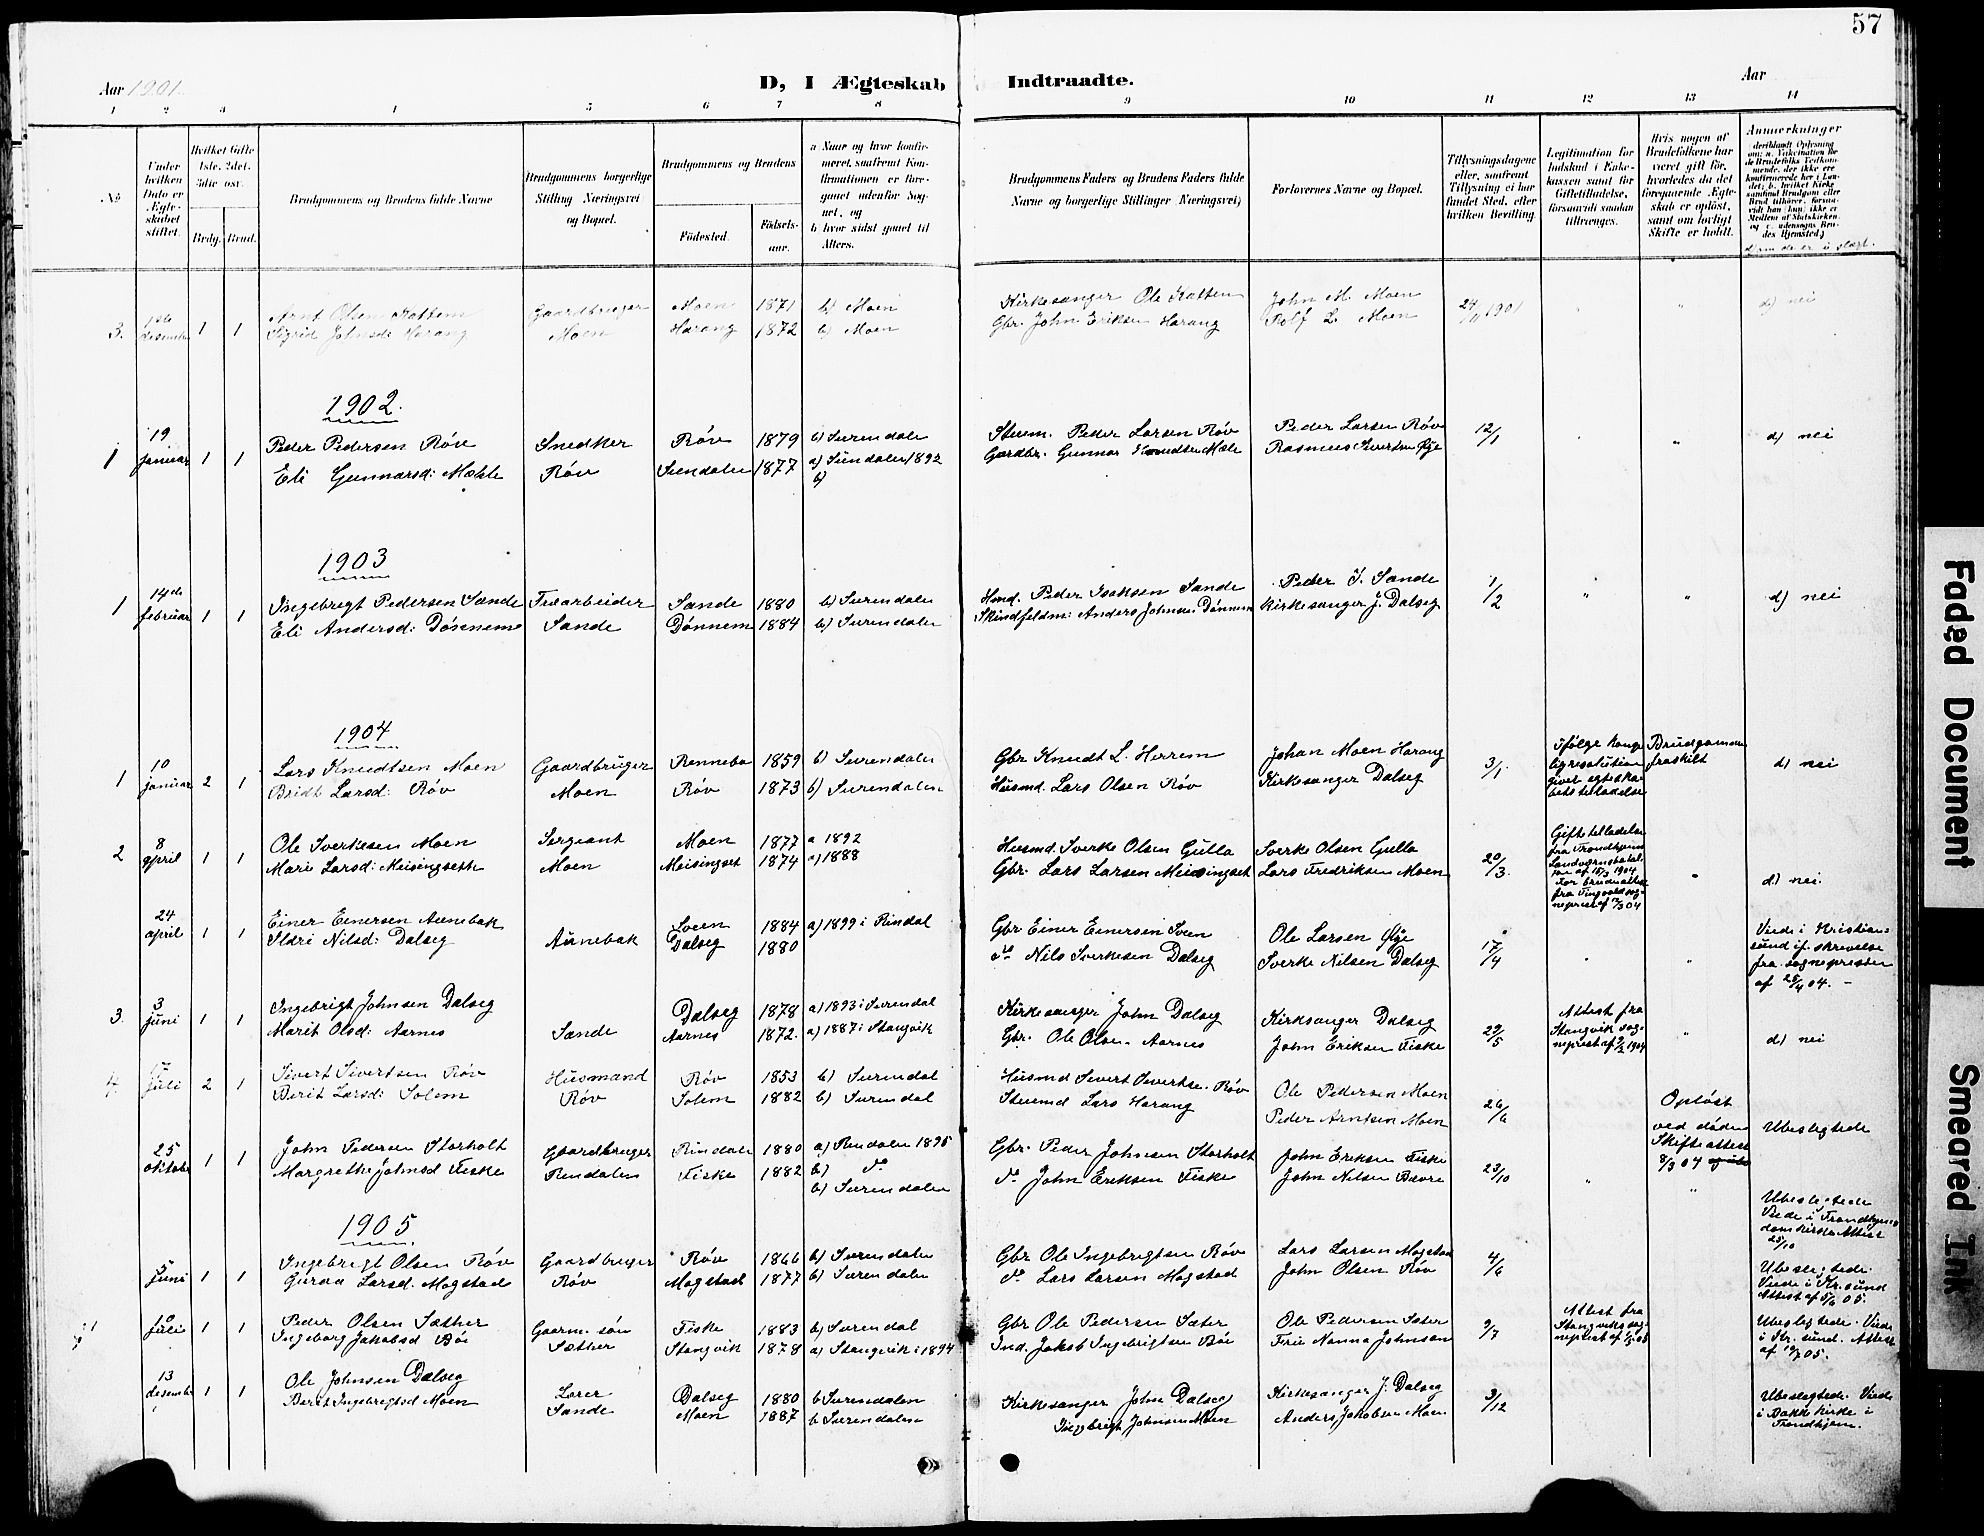 57
Aar 1901.
D, I Ægteskab Indtraadte.
Aar
1 2 3 4 5 6 7 8 9 10 11 12 13 14
No
Under hvilken Dato er Ægteskabet stiftet.
Hvilket Gifte 1ste, 2det, 3die osv.
Brdg. Brud.
Brudgommens og Brudens fulde Navne
Brudgommens borgerlige Stilling Næringsvei og Bopæl.
Brudgommens og Brudens
Fødested. Fødselsaar.
a Naar og hvor konfirmeret, saafremt Konfirmationen er foregaaet udenfor Sognet, og
b hvor sidst gaaet til Alters.
Brudgommens Faders og Brudens Faders fulde Navne og borgerlige Stillinger Næringsvei)
Forlovernes Navne og Bopæl.
Tillysningsdagene eller, saafremt Tillysning ei har fundet Sted, efter hvilken Bevilling.
Legitimation for Indskud i Enkekassen samt for Giftetilladelse, forsaavidt saadan tiltrænges.
Hvis nogen af Brudefolkene har været gift før, hvorledes da det foregaaende Ægteskab er opløst, samt om lovligt Skifte er holdt.
Anmerkninger
d) om de er i slægt.
3. 1ste desember 1 1 Arnt Olsen Kattem Gaardbruger Moen 1871 b) Moen Kirkesanger Ole Kattem John M. Moen 24/11 1901 d) nei
Sigrid Johnsd: Harang Moen Harang 1872 b) Moen Gbr. John Eriksen Harang Rolf L. Moen
1902.
1 19 januar 1 1 Peder Pedersen Røv Snedker Røv 1879 b) Surendalen Stuem. Peder Larsen Røv Peder Larsen Røv 12/1 " d) nei
Eli Gunnarsd: Mæhle Røv Sundalen 1877 a) Sundalen 1892 Gardbr. Gunnar Knudtsen Mæle Rasmus Sivertsen Øye
b)
1903
1 14de februar 1 1 Ingebrigt Pedersen Sande Træarbeider Sande 1880 b) Surendalen Hmd. Peder Isaksen Sande Peder I. Sande 1/2 " " d) nei
Eli Andersd: Dønnem Sande Dønnem 1884 b) Surendalen Skindfeldm: Anders Johnsen Dønnem Kirkesanger J. Dalseg
1904
1 10 januar 2 1 Lars Knudtsen Moen Gaardbruger Rennebo 1859 b) Surendalen Gbr Knudt L. Herrem Johan Moen Harang 3/1. Ifølge kongelig resolution givet egteskabets tilladelse Brudgommen fraskilt d) nei
Bridt Larsd: Røv Moen Røv 1873 b) Surendalen Husmd. Lars Olsen Røv Kirkesanger Dalseg
2 8 april 1 1 Ole Sverkesen Moen Sergeant Moen 1877 a 1892 Husmd. Sverke Olsen Gulla Sverke Olsen Gulla 20/3. Giftetilladelse fra Trondhjems Landværnsbataljon af 15/3 1904 For bruden attest fra Tingvold sogneprest " d) nei.
Marie Larsd: Meisingseth Moen Meisingset 1874 a) 1888 Gbr. Lars Larsen Meisingset Lars Fredriksen Moen
24 april 1 1 Einer Einersen Aunebak Sveen 1884 a) 1899 i Rindal Gbr Einer Einersen Sveen Ole Larsen Øye 17/4 " " Viede i Kristiansund if. skrivelse fra sognepresten af 25/4 04. -
Sldri Nilsd: Dalseg Aunebak Dalseg 1880 do Nils Sverkesen Dalseg Sverke Nilsen Dalseg
3. 3 juni 1 1 Ingebrigt Johnsen Dalseg Dalseg 1878 a) 1893 i Surendal Kirkesanger John Dalseg Kirksanger Dalseg 29/5 Attest fra Stangvik sogneprest af 1904 " d) nei
Marit Olsd: Aarnes Sande Aarnes 1872. a) 1887 i Stangvik Gbr. Ole Olsen Aarnes John Eriksen Fiske
4. juli 2 1 Sivert Sivertsen Røv Husmand Røv 1853 b) Surendal Husmd Sivert Sivertse. Røv Ole Pedersen Moen 26/6 Opløst ved døden Skifteattest 8/3 04 Ubeslegtede
Berit Larsd: Solem Røv Solem 1882 b) Surendal Stuemd Lars Harang Peder Arntsen Moen
25 oktober 1 1 John Pedersen Storholt Gaardbruger Rindalen 1880 a) Rindalen 1895 Gbr. Peder Johnsen Storholt John Eriksen Fiske 23/10 " " Ubeslegtede Viede i Trondhjems domkirke Attest 25/10
Margrethe Johnsd Fiske Rindalen Fiske 1882 b) do do John Eriksen Fiske John Nilsen Bævre
b) Surendalen
1905
5 juni 1 1 Ingebrigt Olsen Røv Gaardbruger Røv 1866 b) Surendalen Gbr Ole Ingebrigtsen Røv Lars Larsen Mogstad 4/6 Ubeslegtede. Viede i Kr.sund Attest af 5/6 05.
Guraa Larsd. Mogstad Røv Mogstad 1877 b) Surendalen do Lars Larsen Mogstad John Olsen Røv
juli 1 1 Peder Olsen Sæther Gaarm. søn Fiske 1883 b) Surendal Gbr Ole Pedersen Sæter Ole Pedersen Sæter 9/7 Attest fra Stangviks sogneprest Ubeslegtede. Viede i Kr. sund. Attest af 05.
Ingeborg Jakobsd Bøe Sæther Stangvik 1878 a) Stangvik i 1894 Ind. Jakob Ingebrigtsen Bøe Frue Nanna Johnsen
13 desember 1 1 Ole Johnsen Dalseg Lærer Dalseg 1880 b Surendalen Kirkesanger John Dalseg Kirkesanger J. Dalseg 3/12 Ubeslegtede. Viede i Bakke kirke i Trondhjem.
Berit Ingebrigtsd Moen Sande Moen 1887 b Surendalen Ingebrigt Johnsen Moen Anders Jakobsen Moen
Faded Document
Smeared Ink